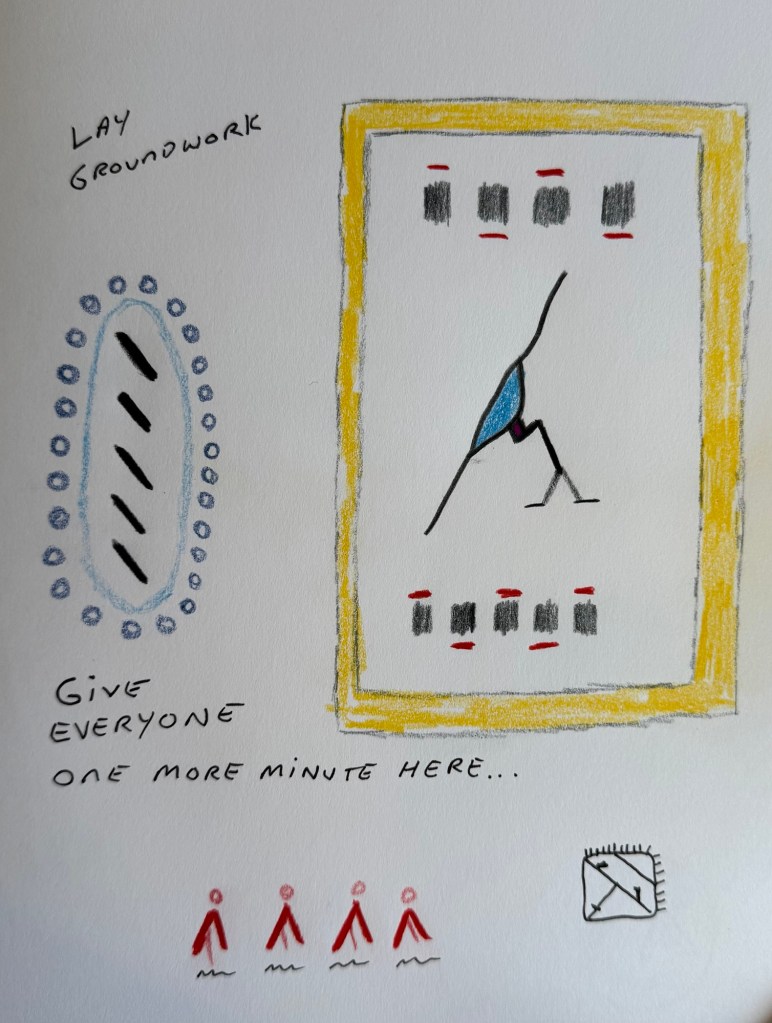 LAY
GROUNDWORK
GIVE
EVERYONE
ONE MORE MINUTE HERE...